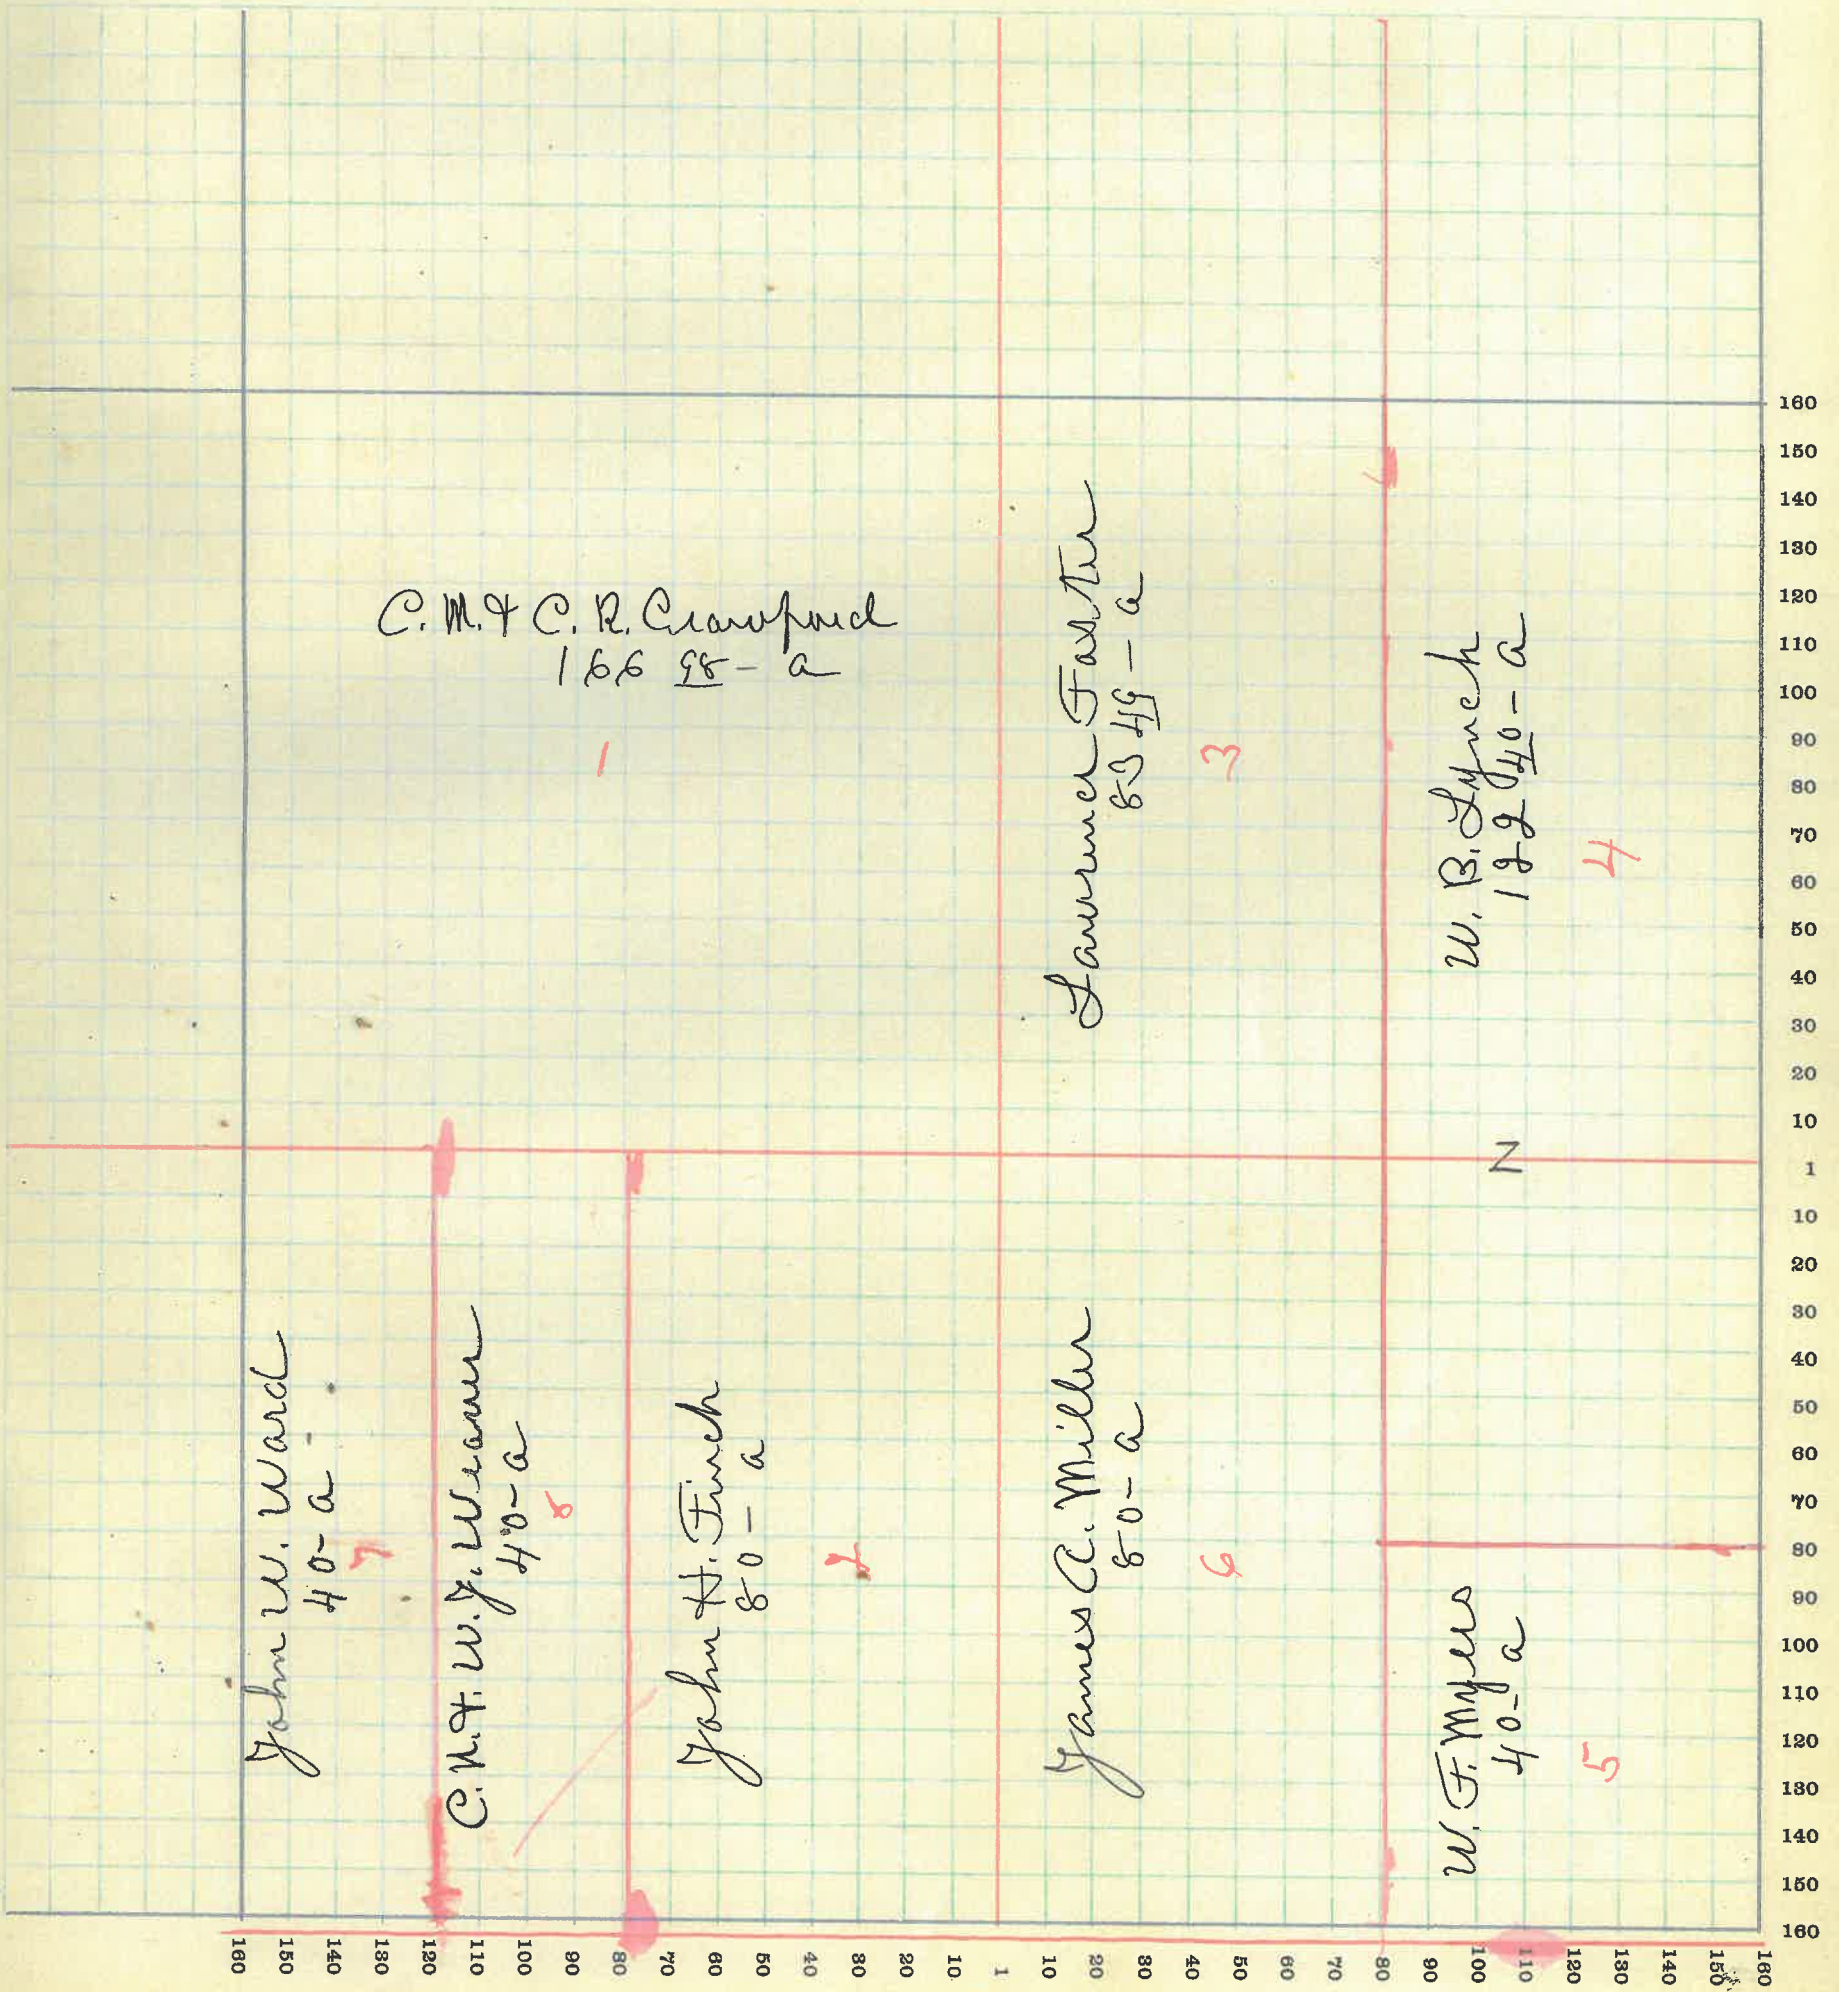 C. M. & C. R. Crawford
166 98 - a
1
Lawrence Foster
83 49 - a
3
W. B. Lynch
122 40 - a
4
N
John W. Ward
40 - a
7
40 - a
8
John H. Finch
80 - a
2
James A. Miller
80 - a
6
W. F. Myers
40 - a
5
160
150
140
130
120
110
100
90
80
70
60
50
40
30
20
10
1
10
20
30
40
50
60
70
80
90
100
110
120
130
140
150
160
160 150 140 130 120 110 100 90 80 70 60 50 40 30 20 10 1 10 20 30 40 50 60 70 80 90 100 110 120 130 140 150 160